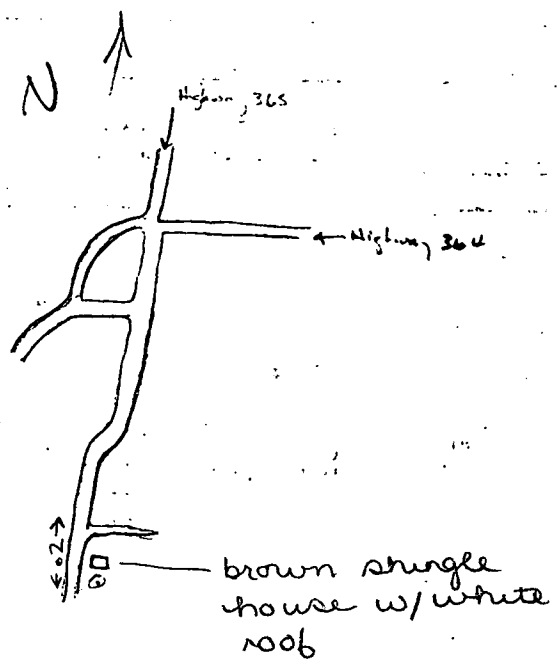 N
Highway 365
Highway 364
.02
brown shingle
house w/ white
roof